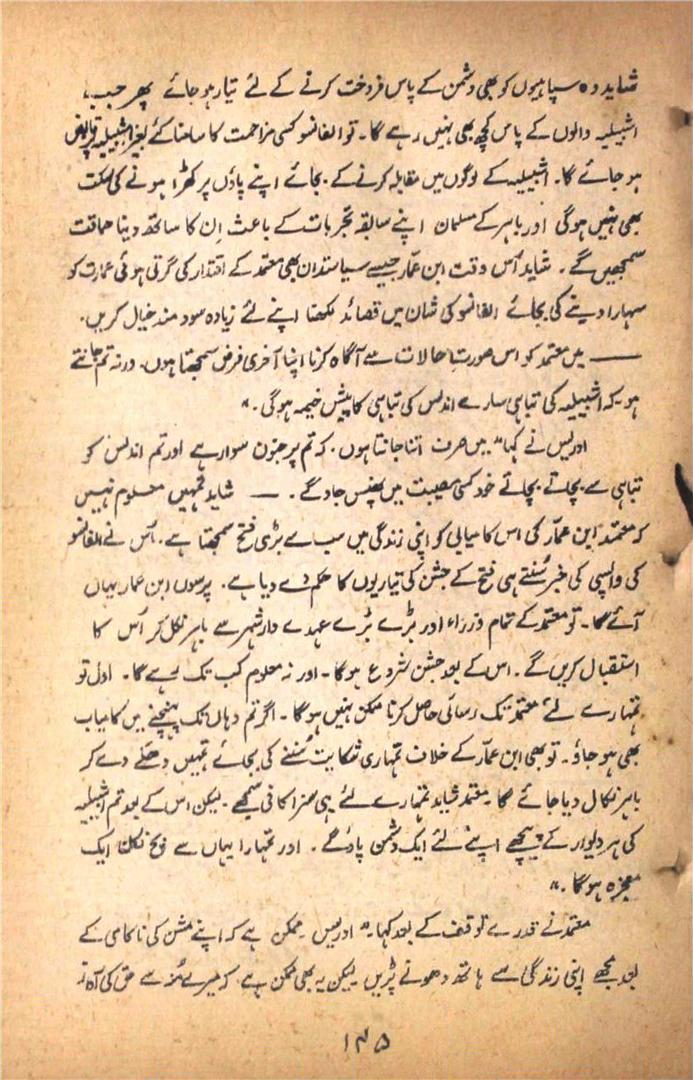 شاید وہ سپاہیوں کو بھی دشمن کے پاس فروخت کرنے کے لئے تیار ہو جائے پھر جب
اشبیلیہ والوں کے پاس کچھ بھی نہیں رہے گا۔ تو الفانسو کسی مزاحمت کا سامنا کئے بغیر اشبیلیہ پر قابض
ہو جائے گا۔ اشبیلیہ کے لوگوں میں مقابلہ کرنے کے بجائے اپنے پاؤں پر کھڑا ہونے کی سکت
بھی نہیں ہوگی اور باہر کے مسلمان اپنے سابقہ تجربات کے باعث اِن کا ساتھ دینا حماقت
سمجھیں گے۔ شاید اُس وقت ابن عمّار جیسے سیاستدان بھی معتمد کے اقتدار کی گرتی ہوئی عمارت کو
سہارا دینے کی بجائے الفانسو کی شان میں قصائد لکھنا اپنے لئے زیادہ سود مند خیال کریں۔
—— میں معتمد کو اس صورتِ حالات سے آگاہ کرنا اپنا آخری فرض سمجھتا ہوں۔ ورنہ تم جانتے
ہو کہ اشبیلیہ کی تباہی سارے اندلس کی تباہی کا پیش خیمہ ہوگی۔"
ادریس نے کہا "میں صرف اتنا جانتا ہوں۔ کہ تم پر جنون سوار ہے اور تم اندلس کو
تباہی سے بچاتے بچاتے خود کسی مصیبت میں پھنس جاؤ گے۔ —— شاید تمہیں معلوم نہیں
کہ معتمد ابن عمّار کی اس کامیابی کو اپنی زندگی میں سب سے بڑی فتح سمجھتا ہے۔ اُس نے الفانسو
کی واپسی کی خبر سُنتے ہی فتح کے جشن کی تیاریوں کا حکم دے دیا ہے۔ پرسوں ابن عمار یہاں
آئے گا۔ تو معتمد کے تمام وزراء اور بڑے بڑے عہدے دار شہر سے باہر نکل کر اُس کا
استقبال کریں گے۔ اس کے بعد جشن شروع ہوگا۔ اور نہ معلوم کب تک رہے گا۔ اول تو
تمہارے لئے معتمد تک رسائی حاصل کرنا ممکن نہیں ہوگا۔ اگر تم وہاں تک پہنچنے میں کامیاب
بھی ہو جاؤ۔ تو بھی ابن عمّار کے خلاف تمہاری شکایت سُننے کی بجائے تمہیں دھکے دے کر
باہر نکال دیا جائے گا۔ معتمد شاید تمہارے لئے یہی سزا کافی سمجھے۔ لیکن اس کے بعد تم اشبیلیہ
کی ہر دیوار کے پیچھے اپنے لئے ایک دشمن پاؤ گے۔ اور تمہارا یہاں سے بچ نکلنا ایک
معجزہ ہوگا۔"
معتمد نے قدرے توقف کے بعد کہا۔ "ادریس ممکن ہے کہ اپنے مشن کی ناکامی کے
بعد مجھے اپنی زندگی سے ہاتھ دھونے پڑیں لیکن یہ بھی ممکن ہے کہ میرے منہ سے حق کی آواز
۱۳۵